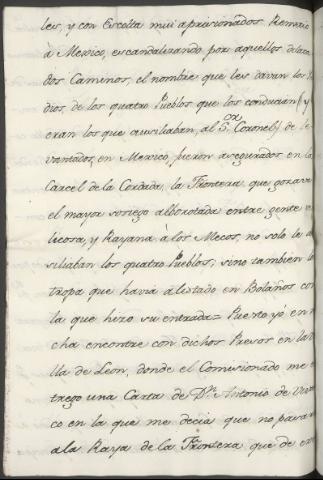 les, y con Escolta mui aprisionados Remitio
à Mexico, escandalizando por aquellos
dos Caminos, el nombre que les davan los
dios, de los quatro Pueblos que los conducian (y
eran los que auxiliaban, al S.or Coronel) de le
vantados, en Mexico, fueron asegurados en la
Carcel de la Cordada, la Frontera, que gozava
el mayor sosiego alborotada entre gente
licosa, y Rayana à los Mecos, no solo le
siliaban los quatro Pueblos, sino tambien la
tropa que havia alistado en Bolaños con
la que hizo su entrada = Puesto yó en
cha encontre con dichos Presos en la Vi
lla de Leon, donde el Comisionado me en
trego una Carta de D.n Antonio de
co en la que me decia que no pasara
a la Raya de la Frontera que de